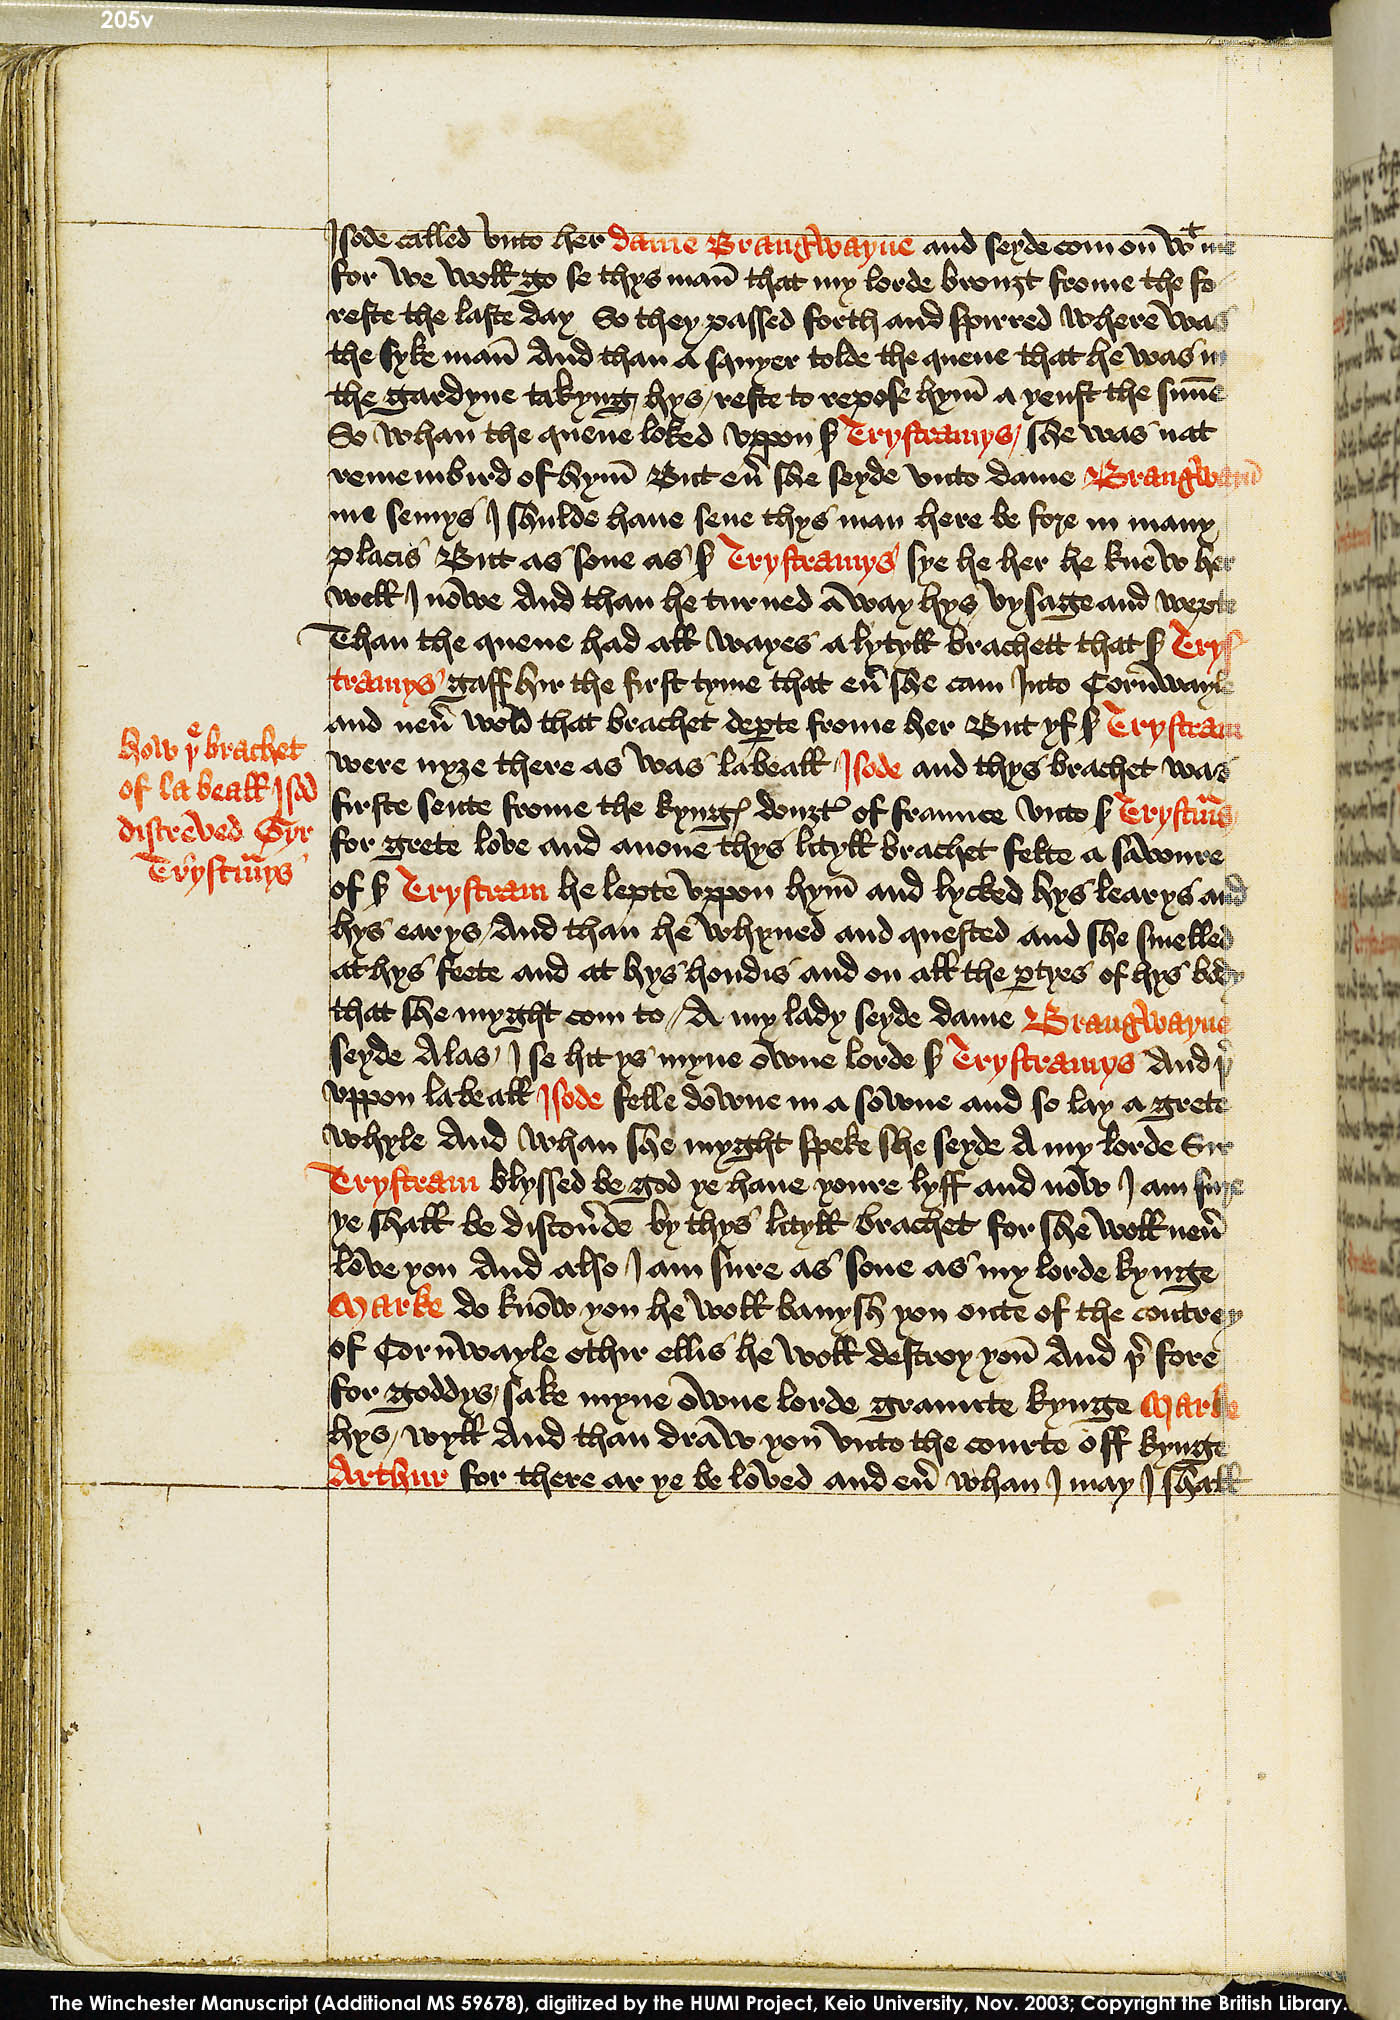 205v
Isode called vnto her dame Brangwayne and seyde com on wt me
for we woll go se thys man that my lorde brouȝt frome the fo
reste the laste day So they passed forth and spirred where was
the syke man And than a squyer tolde the quene that he was in
the gardyne takyng hys reste to repose hym a yenst the sunne
So whan the quene loked vppon sr Trystramys she was nat
remembird of hym But eur she seyde vnto dame Brangwayn
me semys I shulde haue sene thys man here be fore in many
placis But as sone as sr Trystramys sye he her he knew her
well I nowe And than he turned a way hys vysage and wepte
Than the quene had all wayes a lytyll brachett that sr Trys
tramys gaff hir the first tyme that eur she cam Into Cornwayle
and neur wold that brachet depte frome her But yf sr Trystram
were nyȝe there as was la beall Isode and thys brachet was
firste sente frome the kynges douȝtr of fraunce vnto sr Trystrams
for grete love and anone thys lityll brachet felte a savoure
of sr Trystram he lepte vppon hym and lycked hys learys and
hys earys And than he whyned and quested and she smelled
at hys feete and at hys hondis and on all the ptyes of hys body
that she myght com to A my lady seyde dame Brangwayne
seyde Alas I se hit ys myne owne lorde sr Trystramys And þr
vppon la beall Isode felle downe in a sowne and so lay a grete
whyle And whan she myght speke she seyde A my lorde Sir
Trystram blyssed be god ye haue youre lyff and now I am sure
ye shall be discourde by thys lityll brachet for she woll neur
love you And also I am sure as sone as my lorde kynge
Marke do know you he woll banysh you oute of the contrey
of Cornwayle othir ellis he woll destroy you And þr fore
for goddys sake myne owne lorde graunte kynge Marke
hys wyll And than draw you vnto the courte off kynge
Arthur for there ar ye be loved and eur whan I may I shall
how þe brachet
of la beall Isod
distreved Syr
Trystramys
The Winchester Manuscript (Additional MS 59678), digitized by the HUMI Project, Keio University, Nov. 2003; Copyright the British Library.